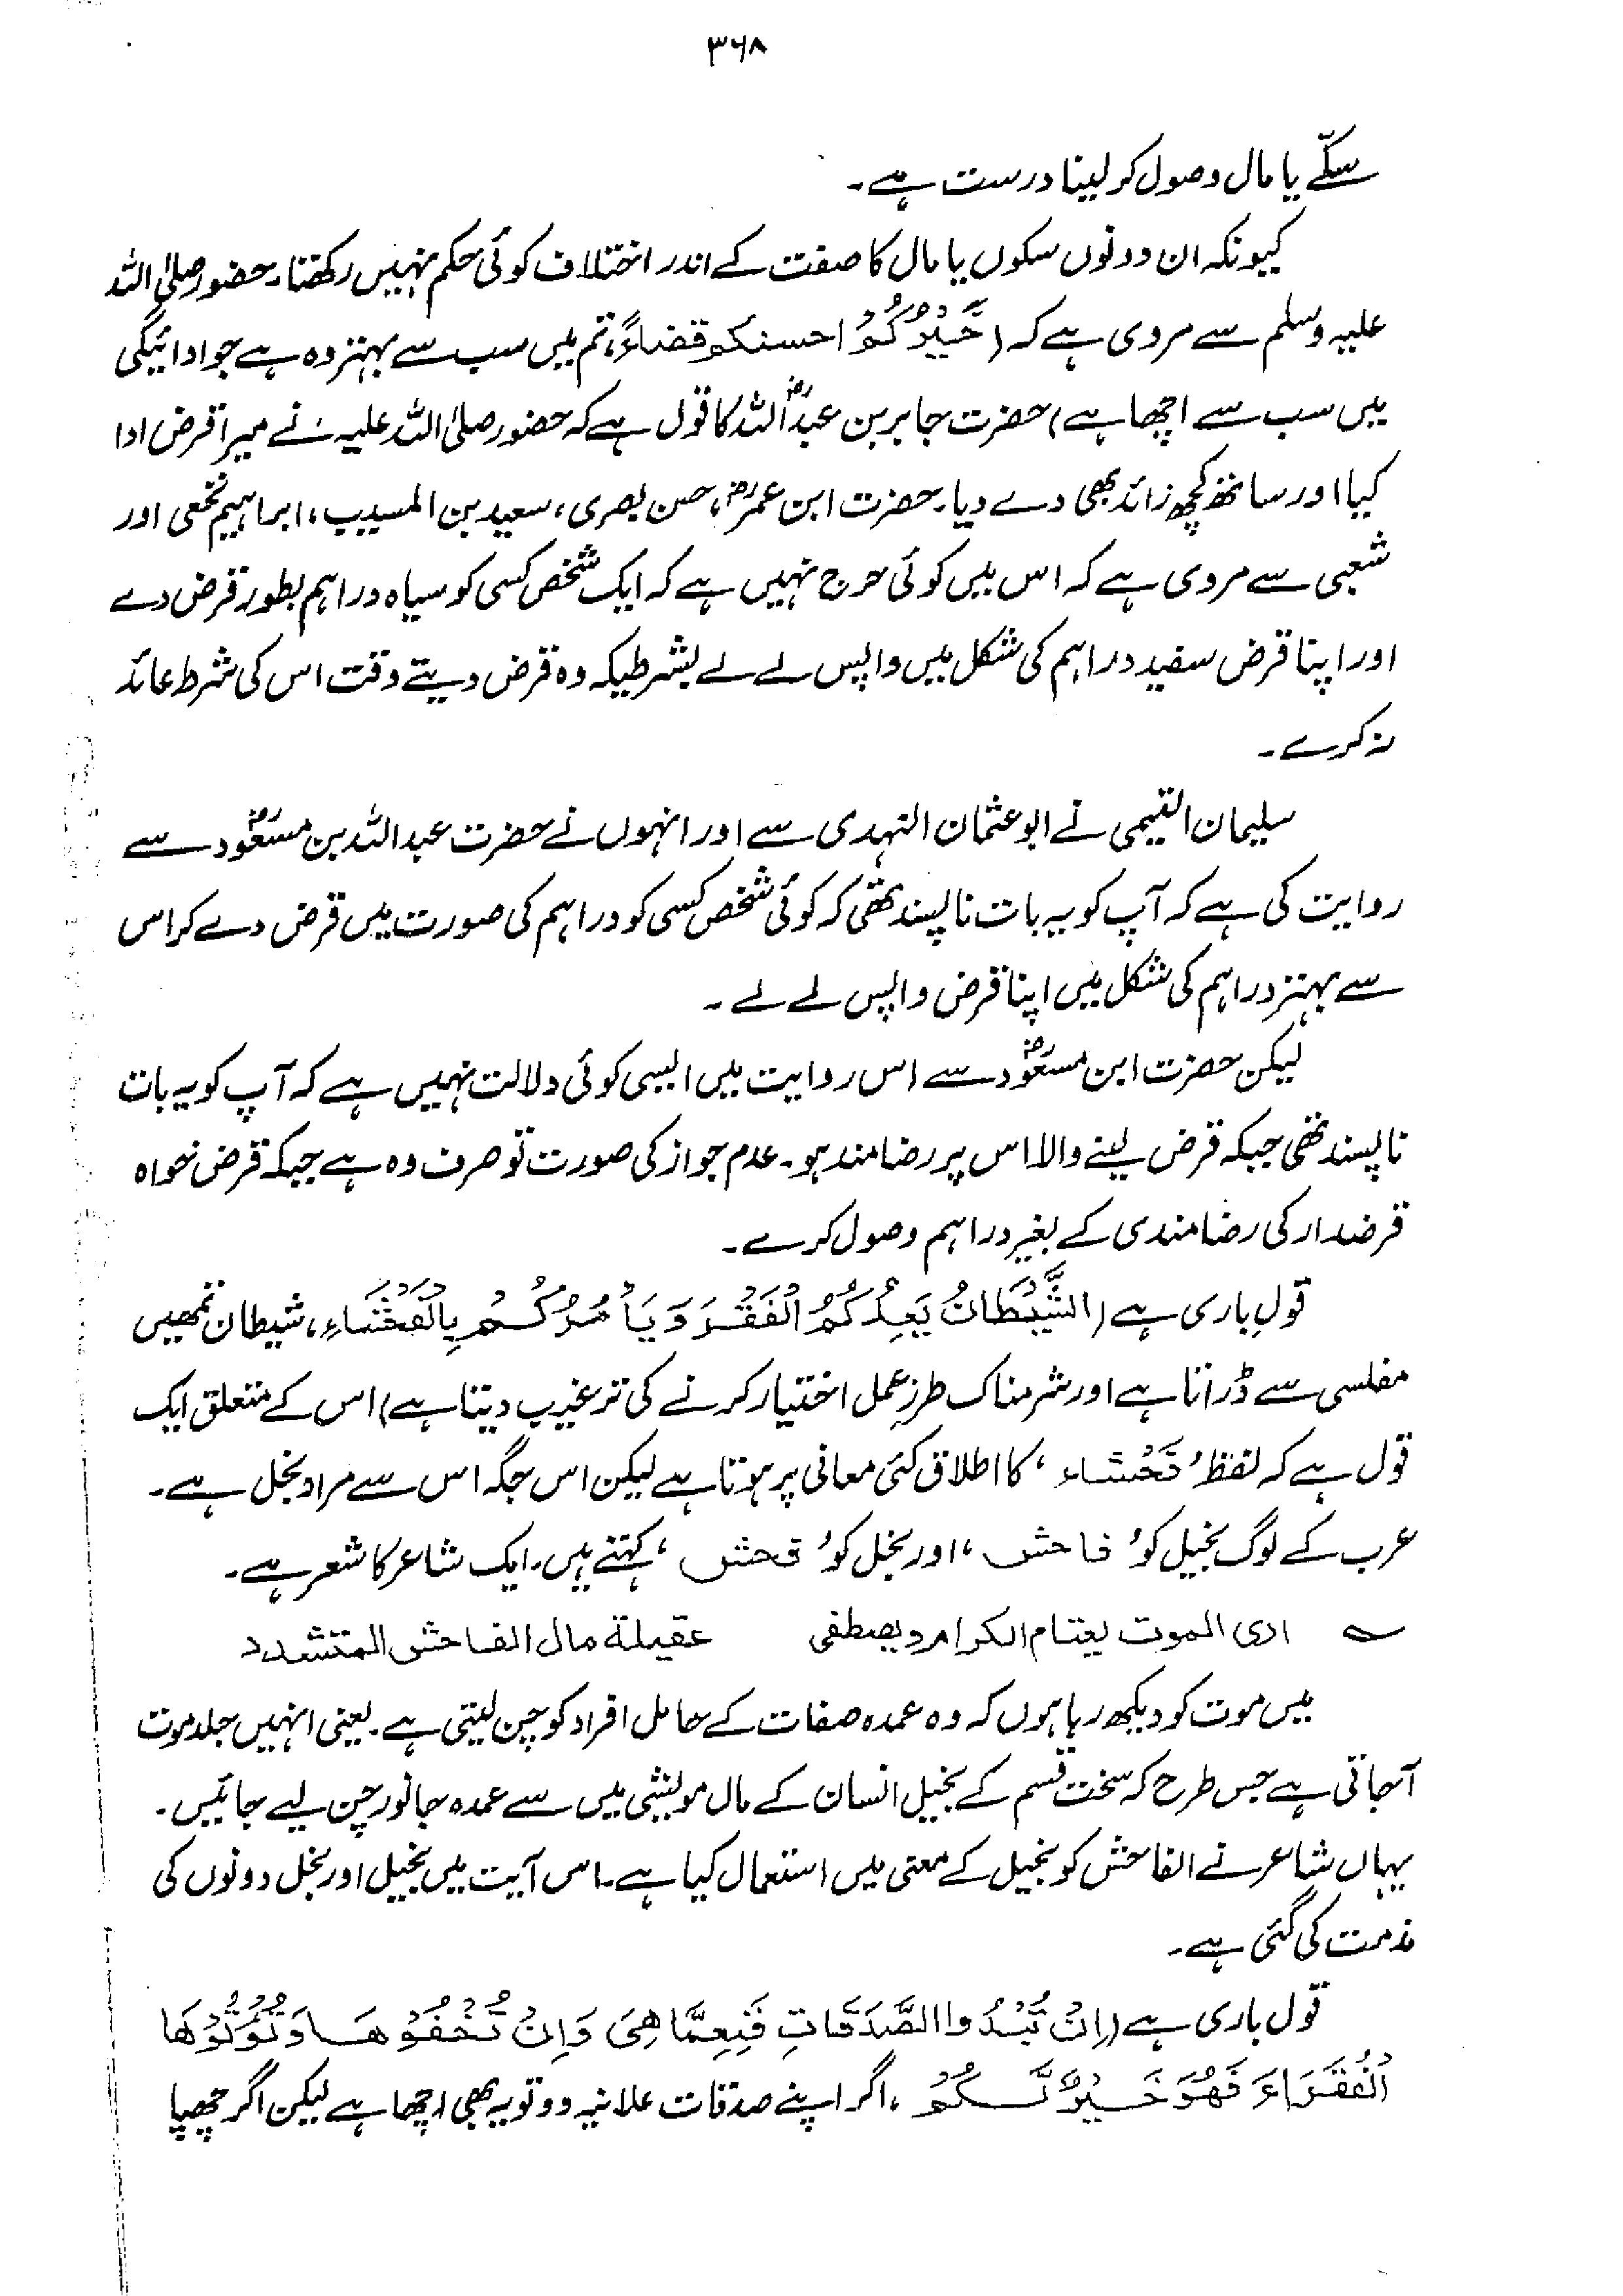 ۳۶۸
سکّے یا مال وصول کر لینا درست ہے۔
کیونکہ ان دونوں سکوں یا مال کا صفت کے اندر اختلاف کوئی حکم نہیں رکھتا۔ حضور صلی اللہ
علیہ وسلم سے مروی ہے کہ (خَیْرُکُمْ احسنکم قضاءً، تم میں سب سے بہتر وہ ہے جو ادائیگی
میں سب سے اچھا ہے) حضرت جابر بن عبداللہؓ کا قول ہے کہ حضور صلی اللہ علیہ نے میرا قرض ادا
کیا اور ساتھ کچھ زائد بھی دے دیا۔ حضرت ابن عمرؓ، حسن بصری، سعید بن المسیب، ابراہیم نخعی اور
شعبی سے مروی ہے کہ اس میں کوئی حرج نہیں ہے کہ ایک شخص کسی کو سیاہ دراہم بطور قرض دے
اور اپنا قرض سفید دراہم کی شکل میں واپس لے لے بشرطیکہ وہ قرض دیتے وقت اس کی شرط عائد
نہ کرے۔
سلیمان التیمی نے ابوعثمان النہدی سے اور انہوں نے حضرت عبداللہ بن مسعودؓ سے
روایت کی ہے کہ آپ کو یہ بات ناپسند تھی کہ کوئی شخص کسی کو دراہم کی صورت میں قرض دے کر اس
سے بہتر دراہم کی شکل میں اپنا قرض واپس لے لے۔
لیکن حضرت ابن مسعودؓ سے اس روایت میں ایسی کوئی دلالت نہیں ہے کہ آپ کو یہ بات
ناپسند تھی جبکہ قرض لینے والا اس پر رضامند ہو۔ عدم جواز کی صورت تو صرف وہ ہے جبکہ قرض خواہ
قرضدار کی رضامندی کے بغیر دراہم وصول کرے۔
قولِ باری ہے (الشَّیْطَانُ یَعِدُکُمُ الْفَقْرَ وَیَأْمُرُکُمْ بِالْفَحْشَاءِ، شیطان تمھیں
مفلسی سے ڈراتا ہے اور شرمناک طرزِ عمل اختیار کرنے کی ترغیب دیتا ہے) اس کے متعلق ایک
قول ہے کہ لفظ ’فَحْشَاء‘ کا اطلاق کئی معانی پر ہوتا ہے لیکن اس جگہ اس سے مراد بخل ہے۔
عرب کے لوگ بخیل کو ’فاحش‘ اور بخل کو ’فحش‘ کہتے ہیں۔ ایک شاعر کا شعر ہے۔
؎ اری الموت یعتام الکرام ویصطفی عقیلة مال الفاحش المتشدد
میں موت کو دیکھ رہا ہوں کہ وہ عمدہ صفات کے حامل افراد کو چن لیتی ہے۔ یعنی انہیں جلد موت
آجاتی ہے جس طرح کہ سخت قسم کے بخیل انسان کے مال مویشی میں سے عمدہ جانور چن لیے جائیں۔
یہاں شاعر نے الفاحش کو بخیل کے معنی میں استعمال کیا ہے۔ اس آیت میں بخیل اور بخل دونوں کی
مذمت کی گئی ہے۔
قول باری ہے (اِنْ تُبْدُوا الصَّدَقَاتِ فَنِعِمَّا هِیَ وَاِنْ تُخْفُوْهَا وَتُؤْتُوْهَا
الْفُقَرَاءَ فَهُوَ خَیْرٌ لَّکُمْ، اگر اپنے صدقات علانیہ دو تو یہ بھی اچھا ہے لیکن اگر چھپا